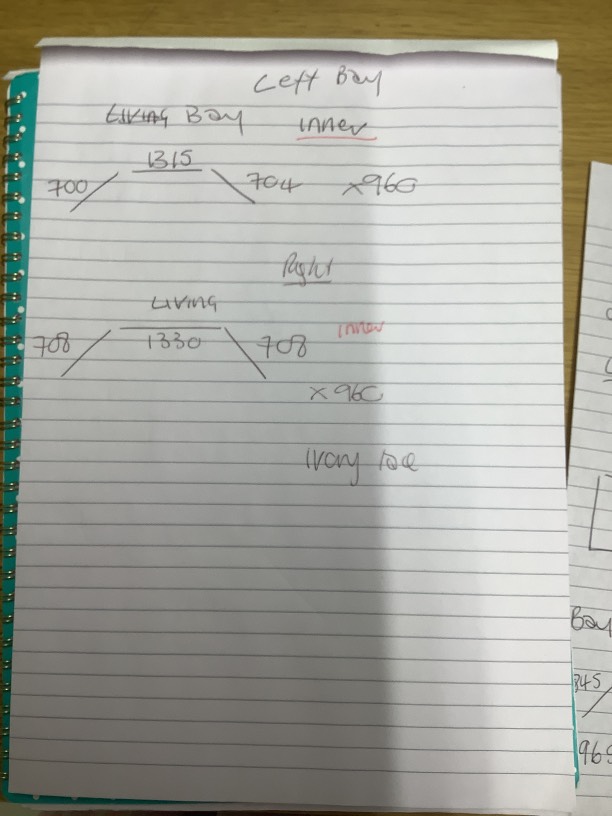 Left Bay
Living Bay inner
1315
700 704 x960
Right
Living
708 1330 708 inner
x960
Ivory
Bay
345